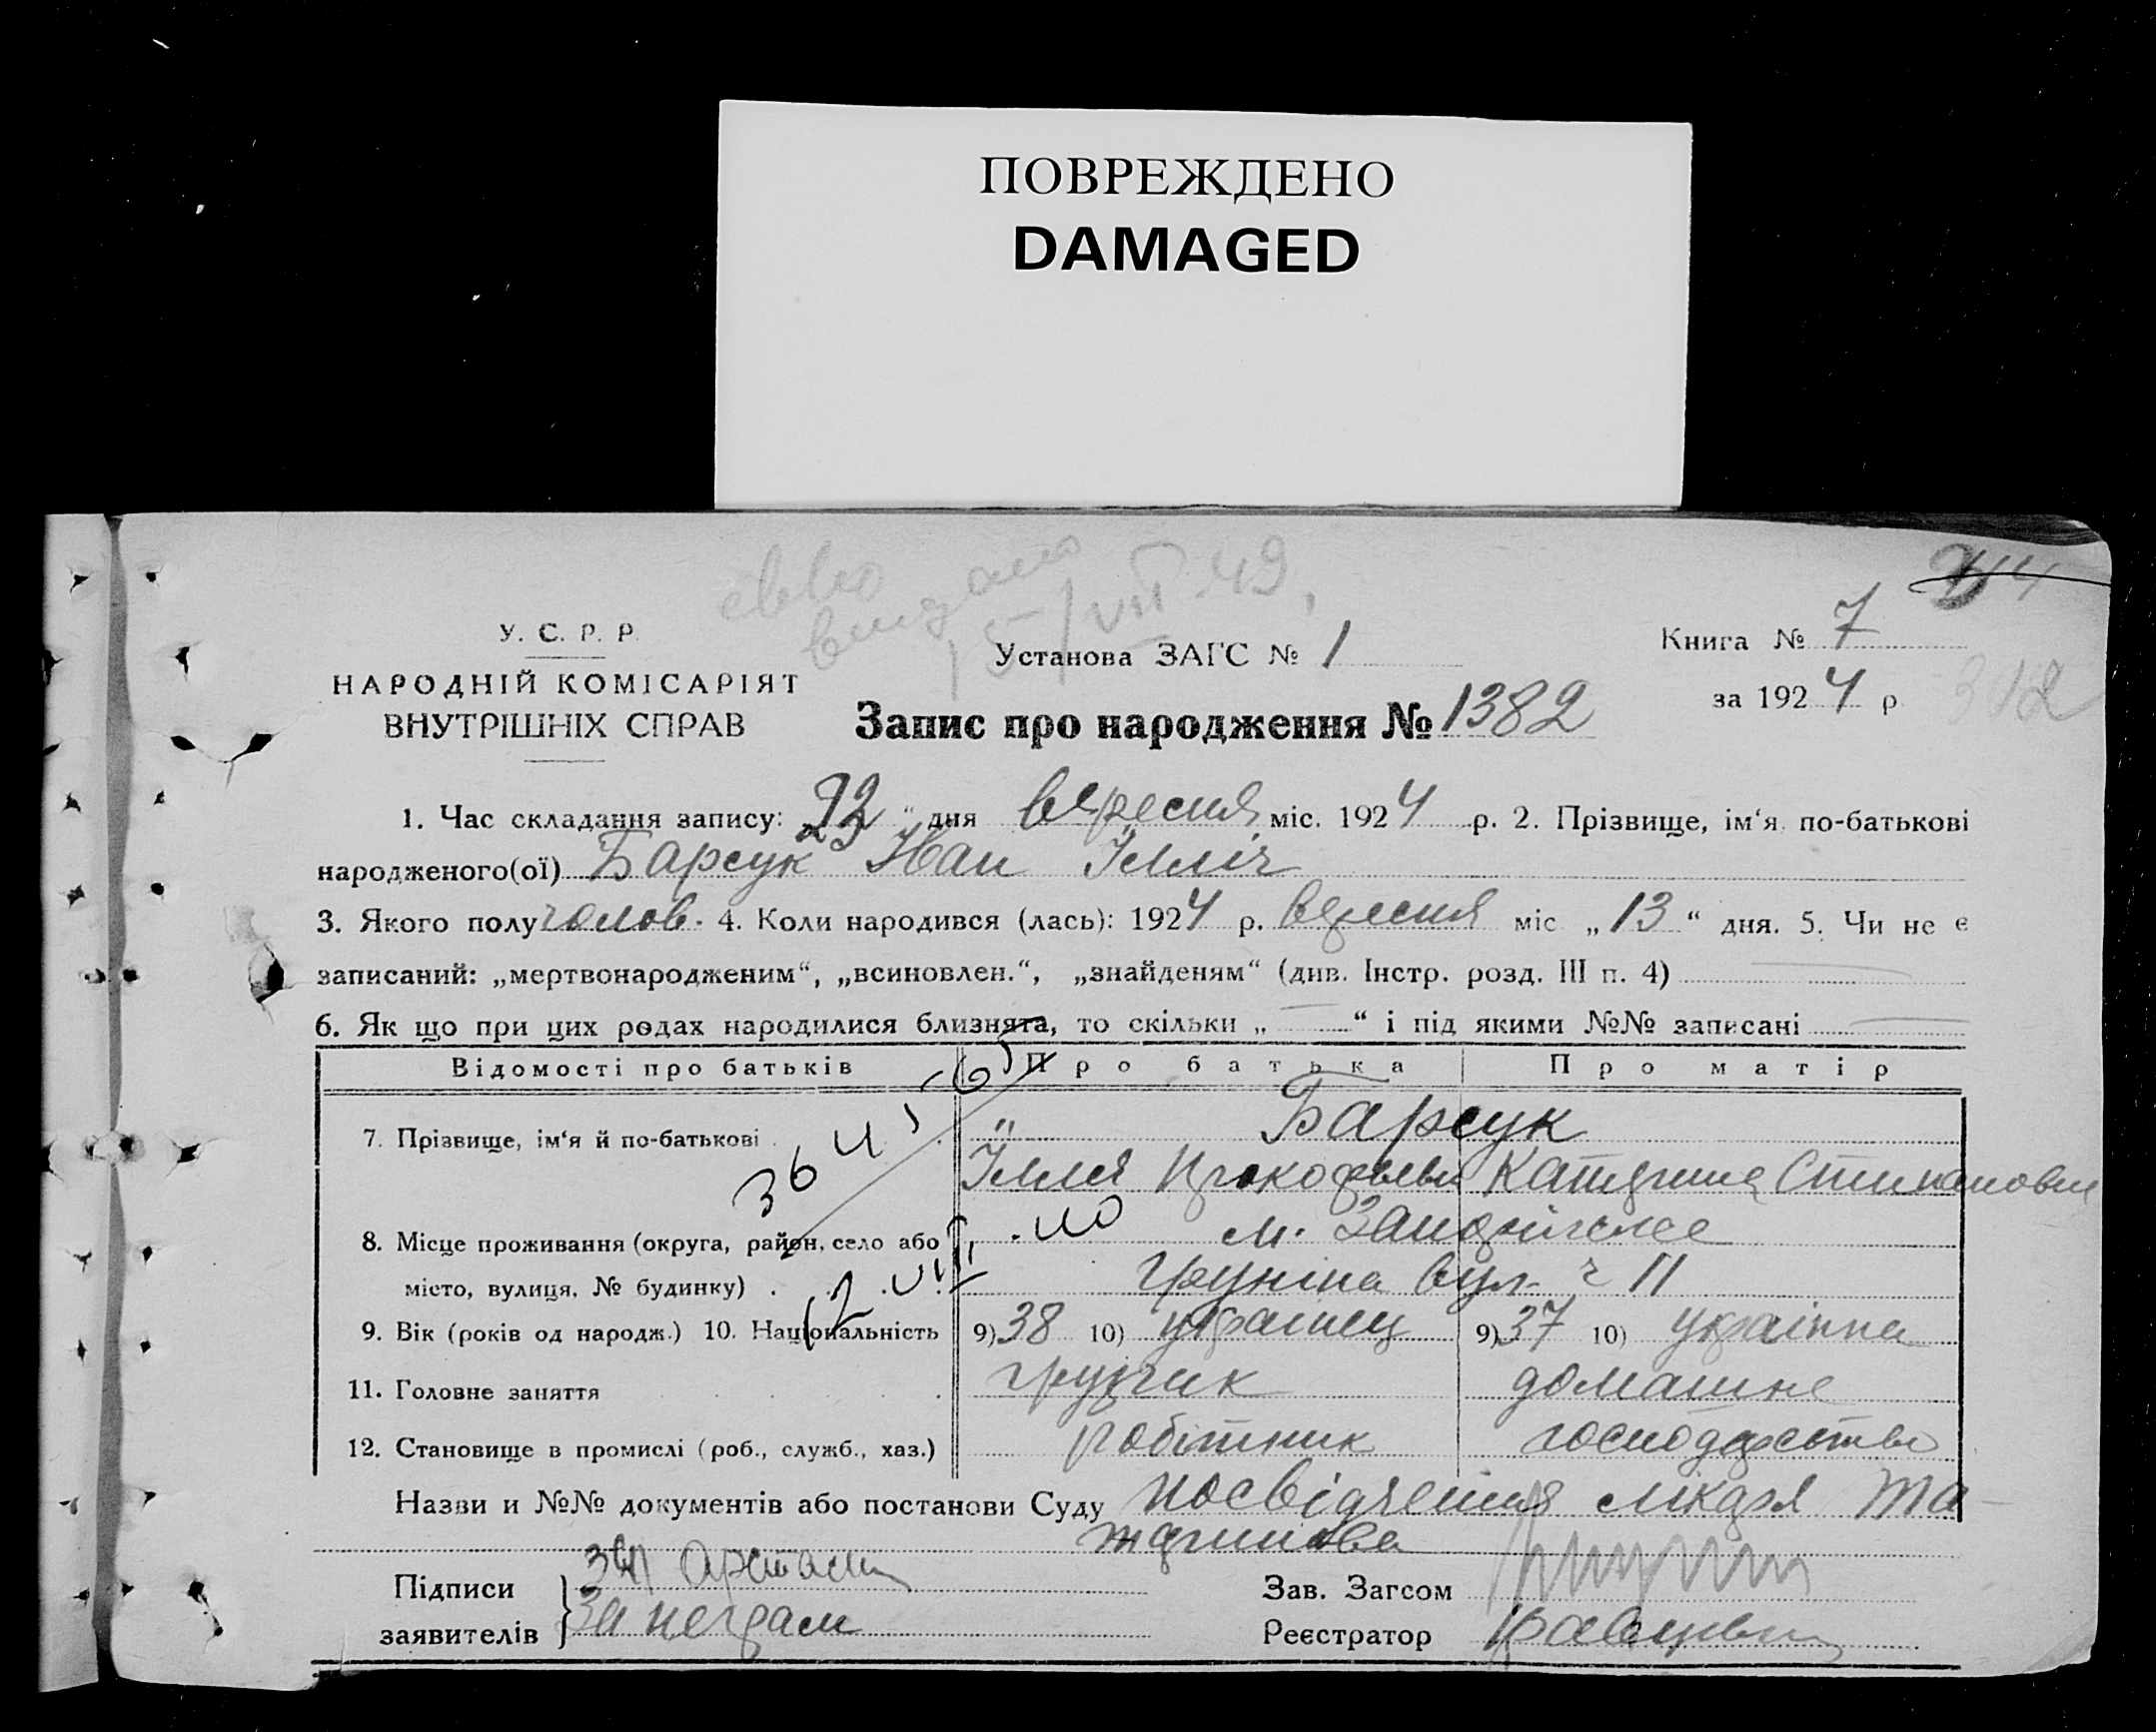 ПОВРЕЖДЕНО
DAMAGED
видано
15/VIII 49,
У. С. Р. Р.
НАРОДНІЙ КОМІСАРІЯТ
ВНУТРІШНІХ СПРАВ
Установа ЗАГС № 1
Книга № 7
за 1924 р
312
Запис про народження № 1382
1. Час складання запису: 23 “ дня вересня міс. 1924 р. 2. Прізвище, ім‘я по-батькові
народженого(ої) Барсук Іван Ілліч
3. Якого полу чолов. 4. Коли народився (лась): 1924 р. вересня міс „ 13 “ дня. 5. Чи не є
записаний: „мертвонародженим“, „всиновлен.“, „знайденям“ (див. Інстр. розд. III п. 4)
6. Як що при цих родах народилися близнята, то скільки „ — “ і під якими №№ записані —
Відомості про батьків
Про батька
Про матір
7. Прізвище, ім‘я й по-батькові
„ Барсук
Ілля Прокофьев Катерина Степановна
8. Місце проживання (округа, район, село або
місто, вулиця, № будинку)
м.
вул. ч 11
9. Вік (років од народж.) 10. Національність
9) 38 10) українец
9) 37 10) українка
11. Головне заняття
грузчик
домашне
12. Становище в промислі (роб., служб., хаз.)
робітник
господарство
Назви и №№ документів або постанови Суду посвідчення лікаря Та-
Підписи
заявителів
Зав. Загсом
Реєстратор